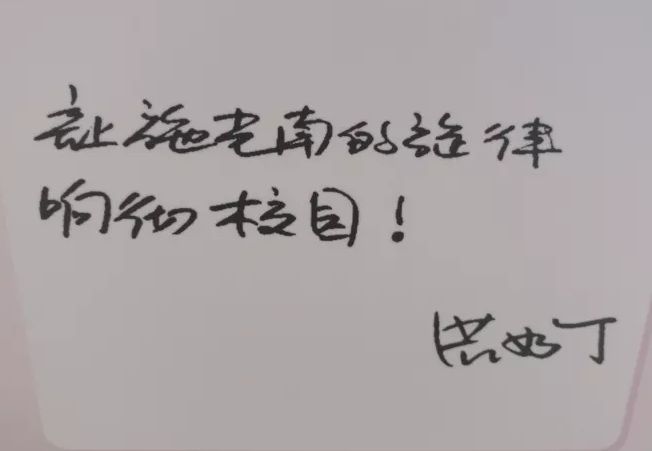 让施光南的旋律
响彻校园!
洪如丁